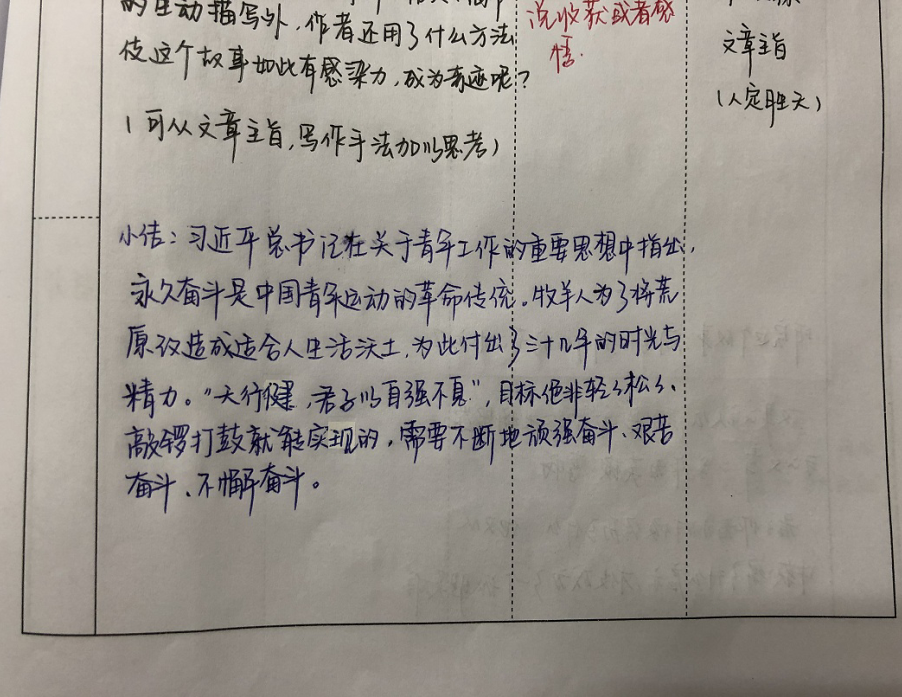 的生动描写外，作者还用了什么方法
使这个故事如此有感染力，成为奇迹呢？
（可从文章主旨，写作手法加以思考）
说收获或者感
悟.
文章主旨
（人定胜天）
小结：习近平总书记在关于青年工作的重要思想中指出，
永久奋斗是中国青年运动的革命传统。牧羊人为了将荒
原改造成适合人生活沃土，为此付出了三十几年的时光与
精力。“天行健，君子以自强不息”，目标绝非轻轻松松、
敲锣打鼓就能实现的，需要不断地顽强奋斗、艰苦
奋斗、不懈奋斗。